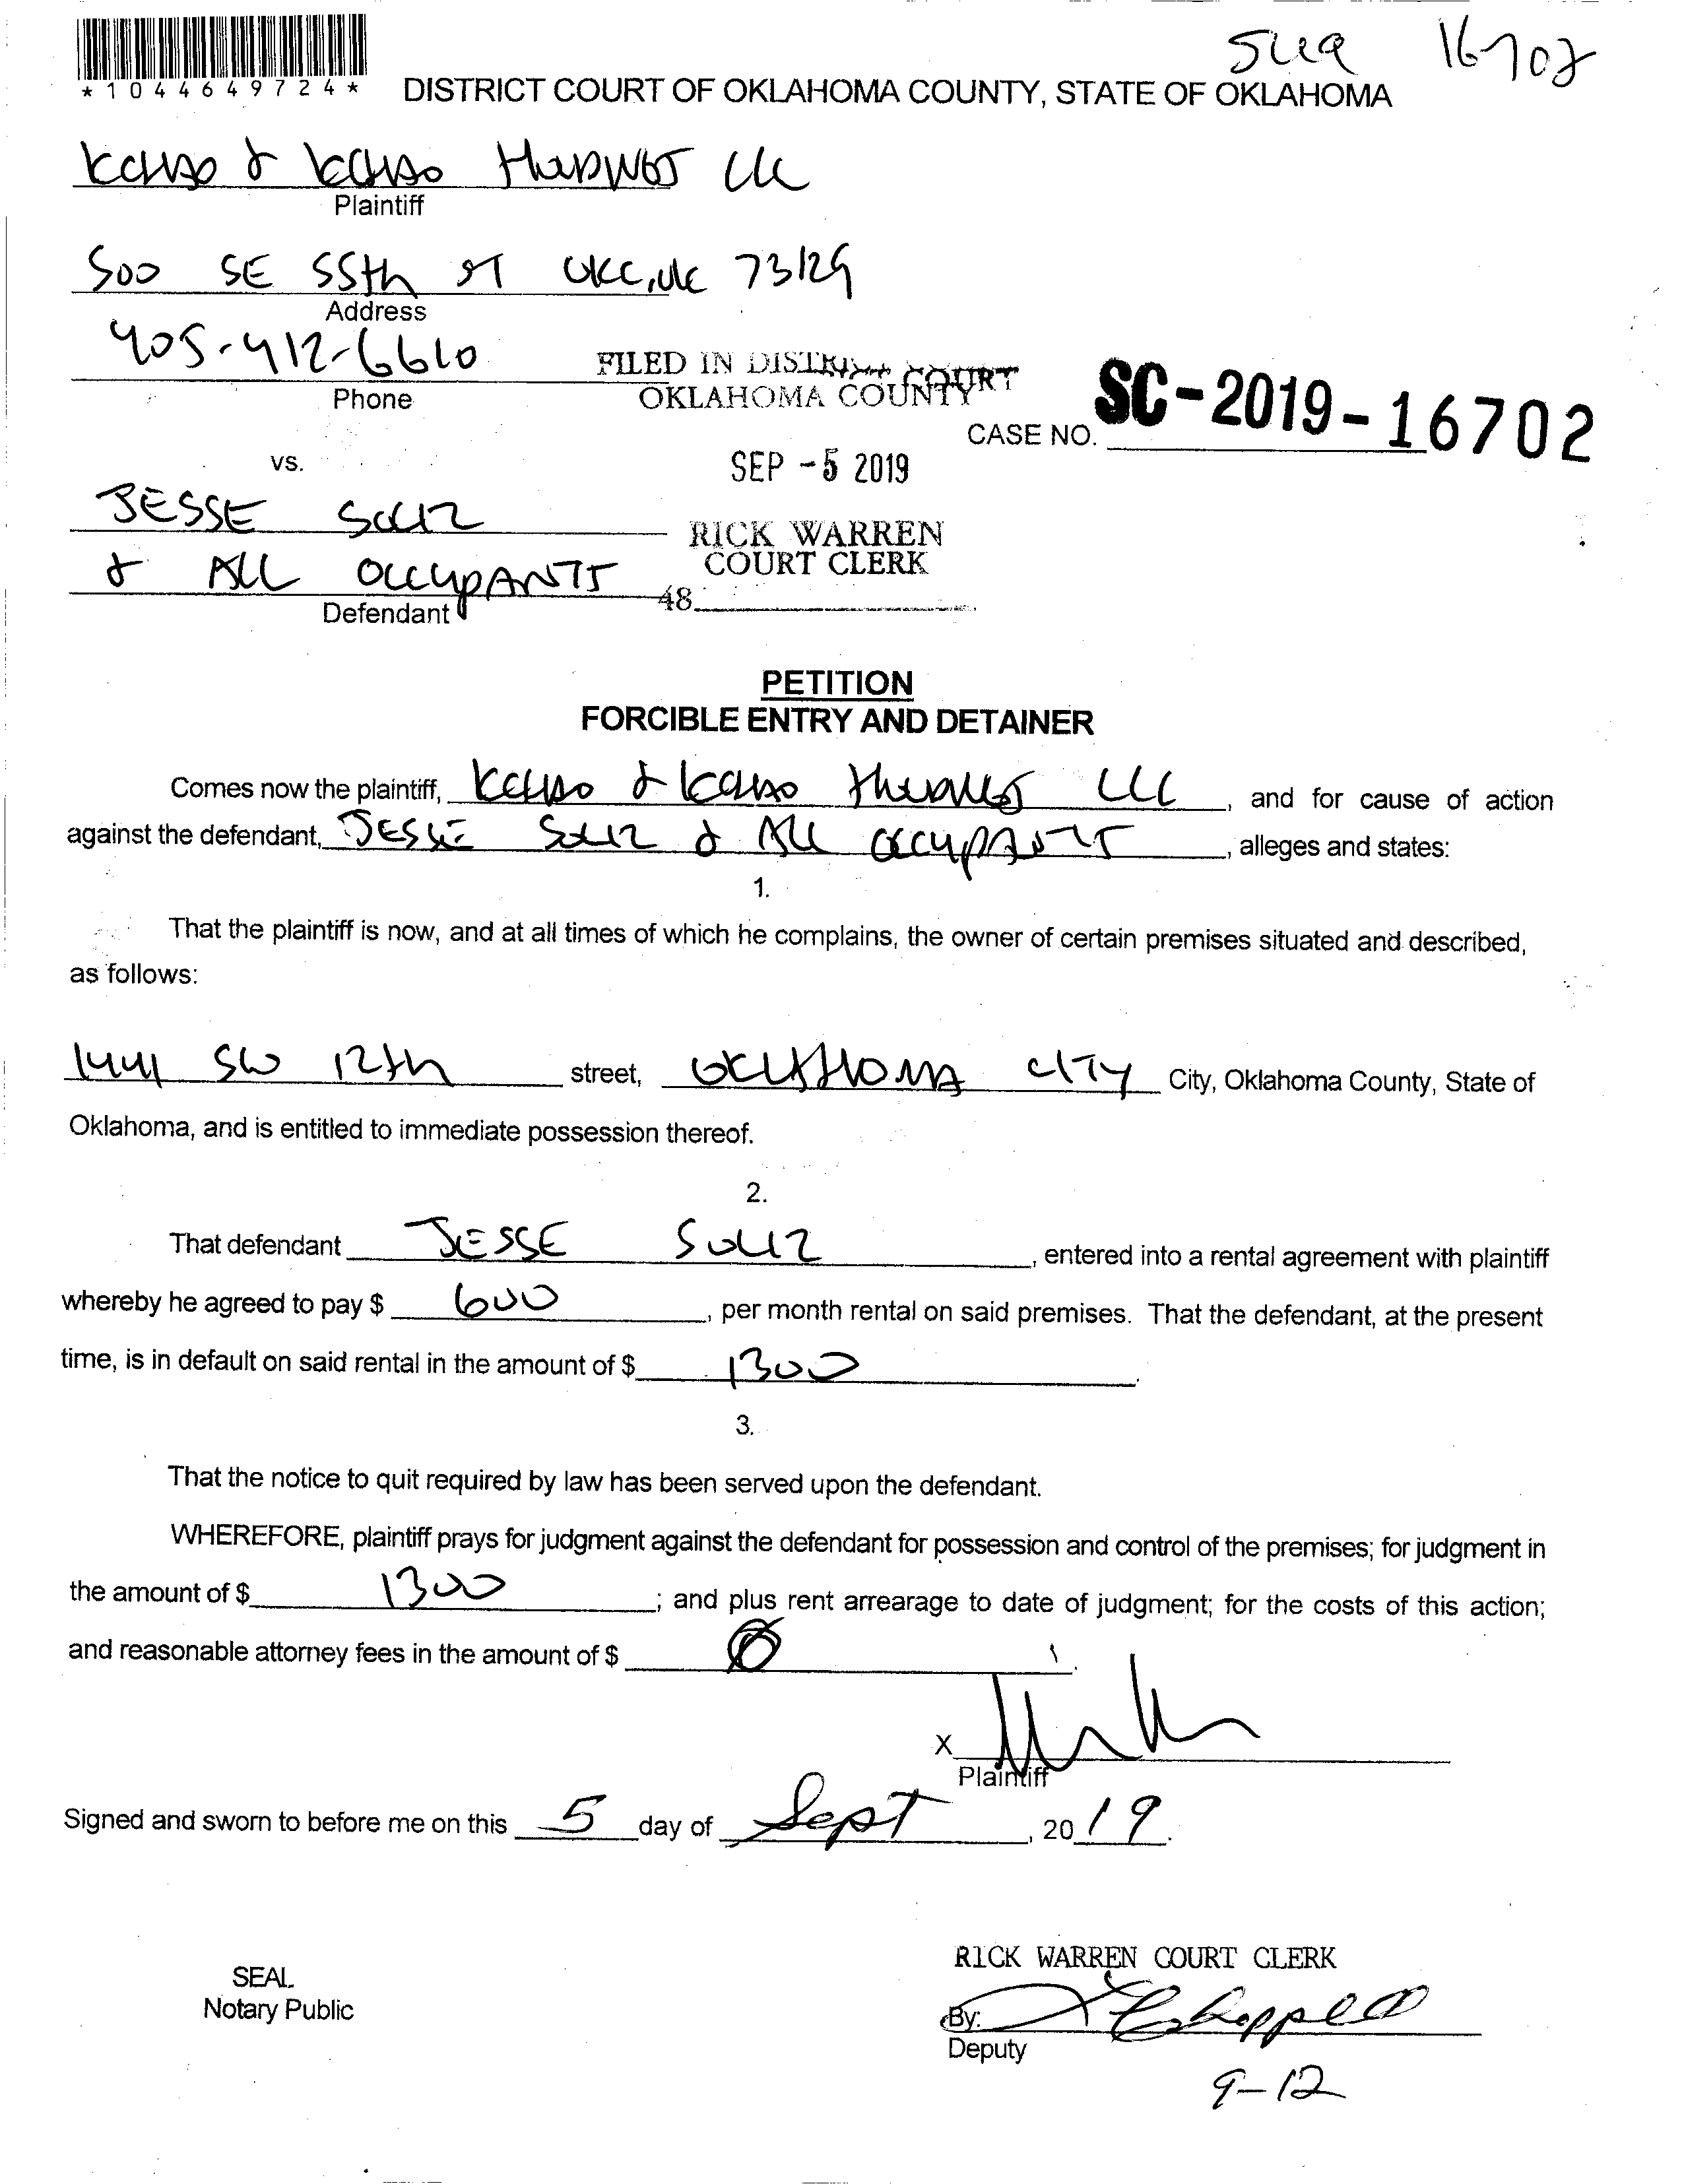 16702
*1044649724*
DISTRICT COURT OF OKLAHOMA COUNTY, STATE OF OKLAHOMA
KELSO & KELSO LLC
Plaintiff
500 SE 55th ST OKC, OK 73129
Address
405-412-6610
Phone
FILED IN DISTRICT COURT
OKLAHOMA COUNTY
CASE NO. SC-2019-16702
vs.
SEP -5 2019
JESSE SOLIZ
RICK WARREN
COURT CLERK
& ALL OCCUPANTS
48
Defendant
PETITION
FORCIBLE ENTRY AND DETAINER
Comes now the plaintiff, KELSO & KELSO LLC, and for cause of action
against the defendant, JESSE SOLIZ & ALL OCCUPANTS, alleges and states:
1.
That the plaintiff is now, and at all times of which he complains, the owner of certain premises situated and described,
as follows:
1441 SW 12th street, OKLAHOMA CITY City, Oklahoma County, State of
Oklahoma, and is entitled to immediate possession thereof.
2.
That defendant JESSE SOLIZ, entered into a rental agreement with plaintiff
whereby he agreed to pay $ 600, per month rental on said premises. That the defendant, at the present
time, is in default on said rental in the amount of $ 1300.
3.
That the notice to quit required by law has been served upon the defendant.
WHEREFORE, plaintiff prays for judgment against the defendant for possession and control of the premises; for judgment in
the amount of $ 1300; and plus rent arrearage to date of judgment; for the costs of this action;
and reasonable attorney fees in the amount of $ 0.
X
Plaintiff
Signed and sworn to before me on this 5 day of Sept, 2019.
RICK WARREN COURT CLERK
SEAL
Notary Public
By:
Deputy
9-12